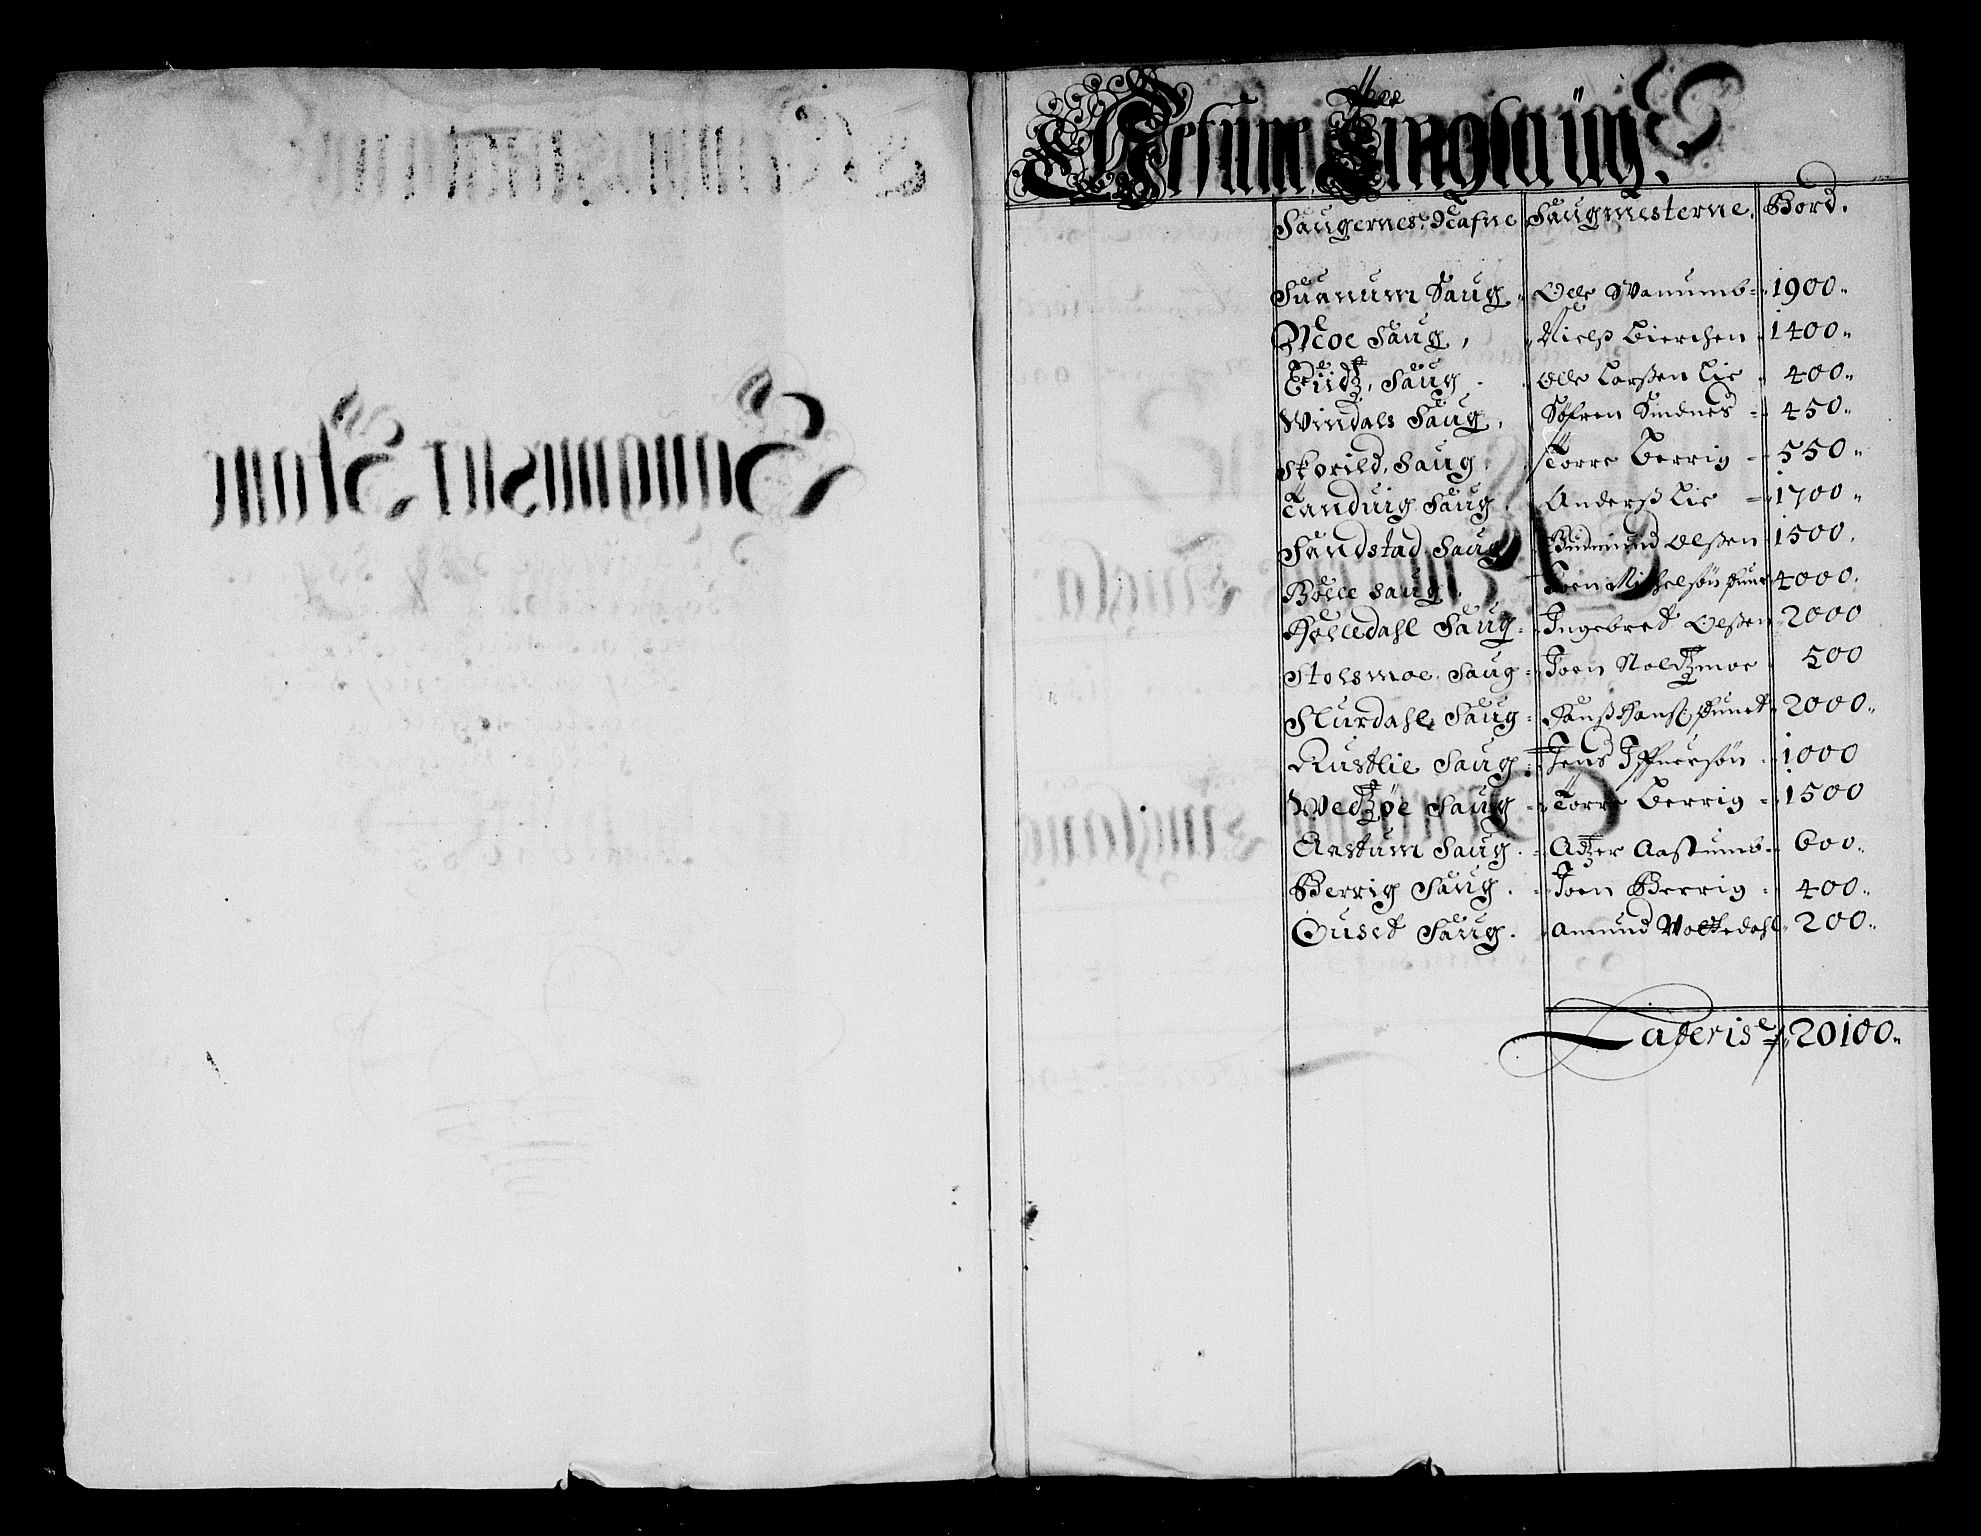 Nesumb Tinglaug.
Saugernes Nafne Saugmesterne. Bord.
Suanum Saug Olle Svanumb 1900
Moe Saug, Nielß Bierchen 1400
Saug Olle Larßen Lie 400
Windals Saug, Søfren Smednes 450
Skorild Saug Torre Herrig 550
Tanduig Saug Anderß Lie 1700
Sandstad Saug Gudmund Olßen 1500
Bolle Saug Joen Michelsøn 4000
Holledahl Saug Ingebret Olßen 2000
Stolsmoe Saug Joen Stoltzmoe 500
Slurdahl Saug Hanß Hanß: 2000
Rustlie Saug Jens Iffuersøn 1000
Wetzøe Saug Torre Herrig 1500
Aastum Saug Atzer Aastumb 600
Herrig Saug Joen Herrig 400
Ouset Saug Amund Woltedahl 200
Lateris 20100